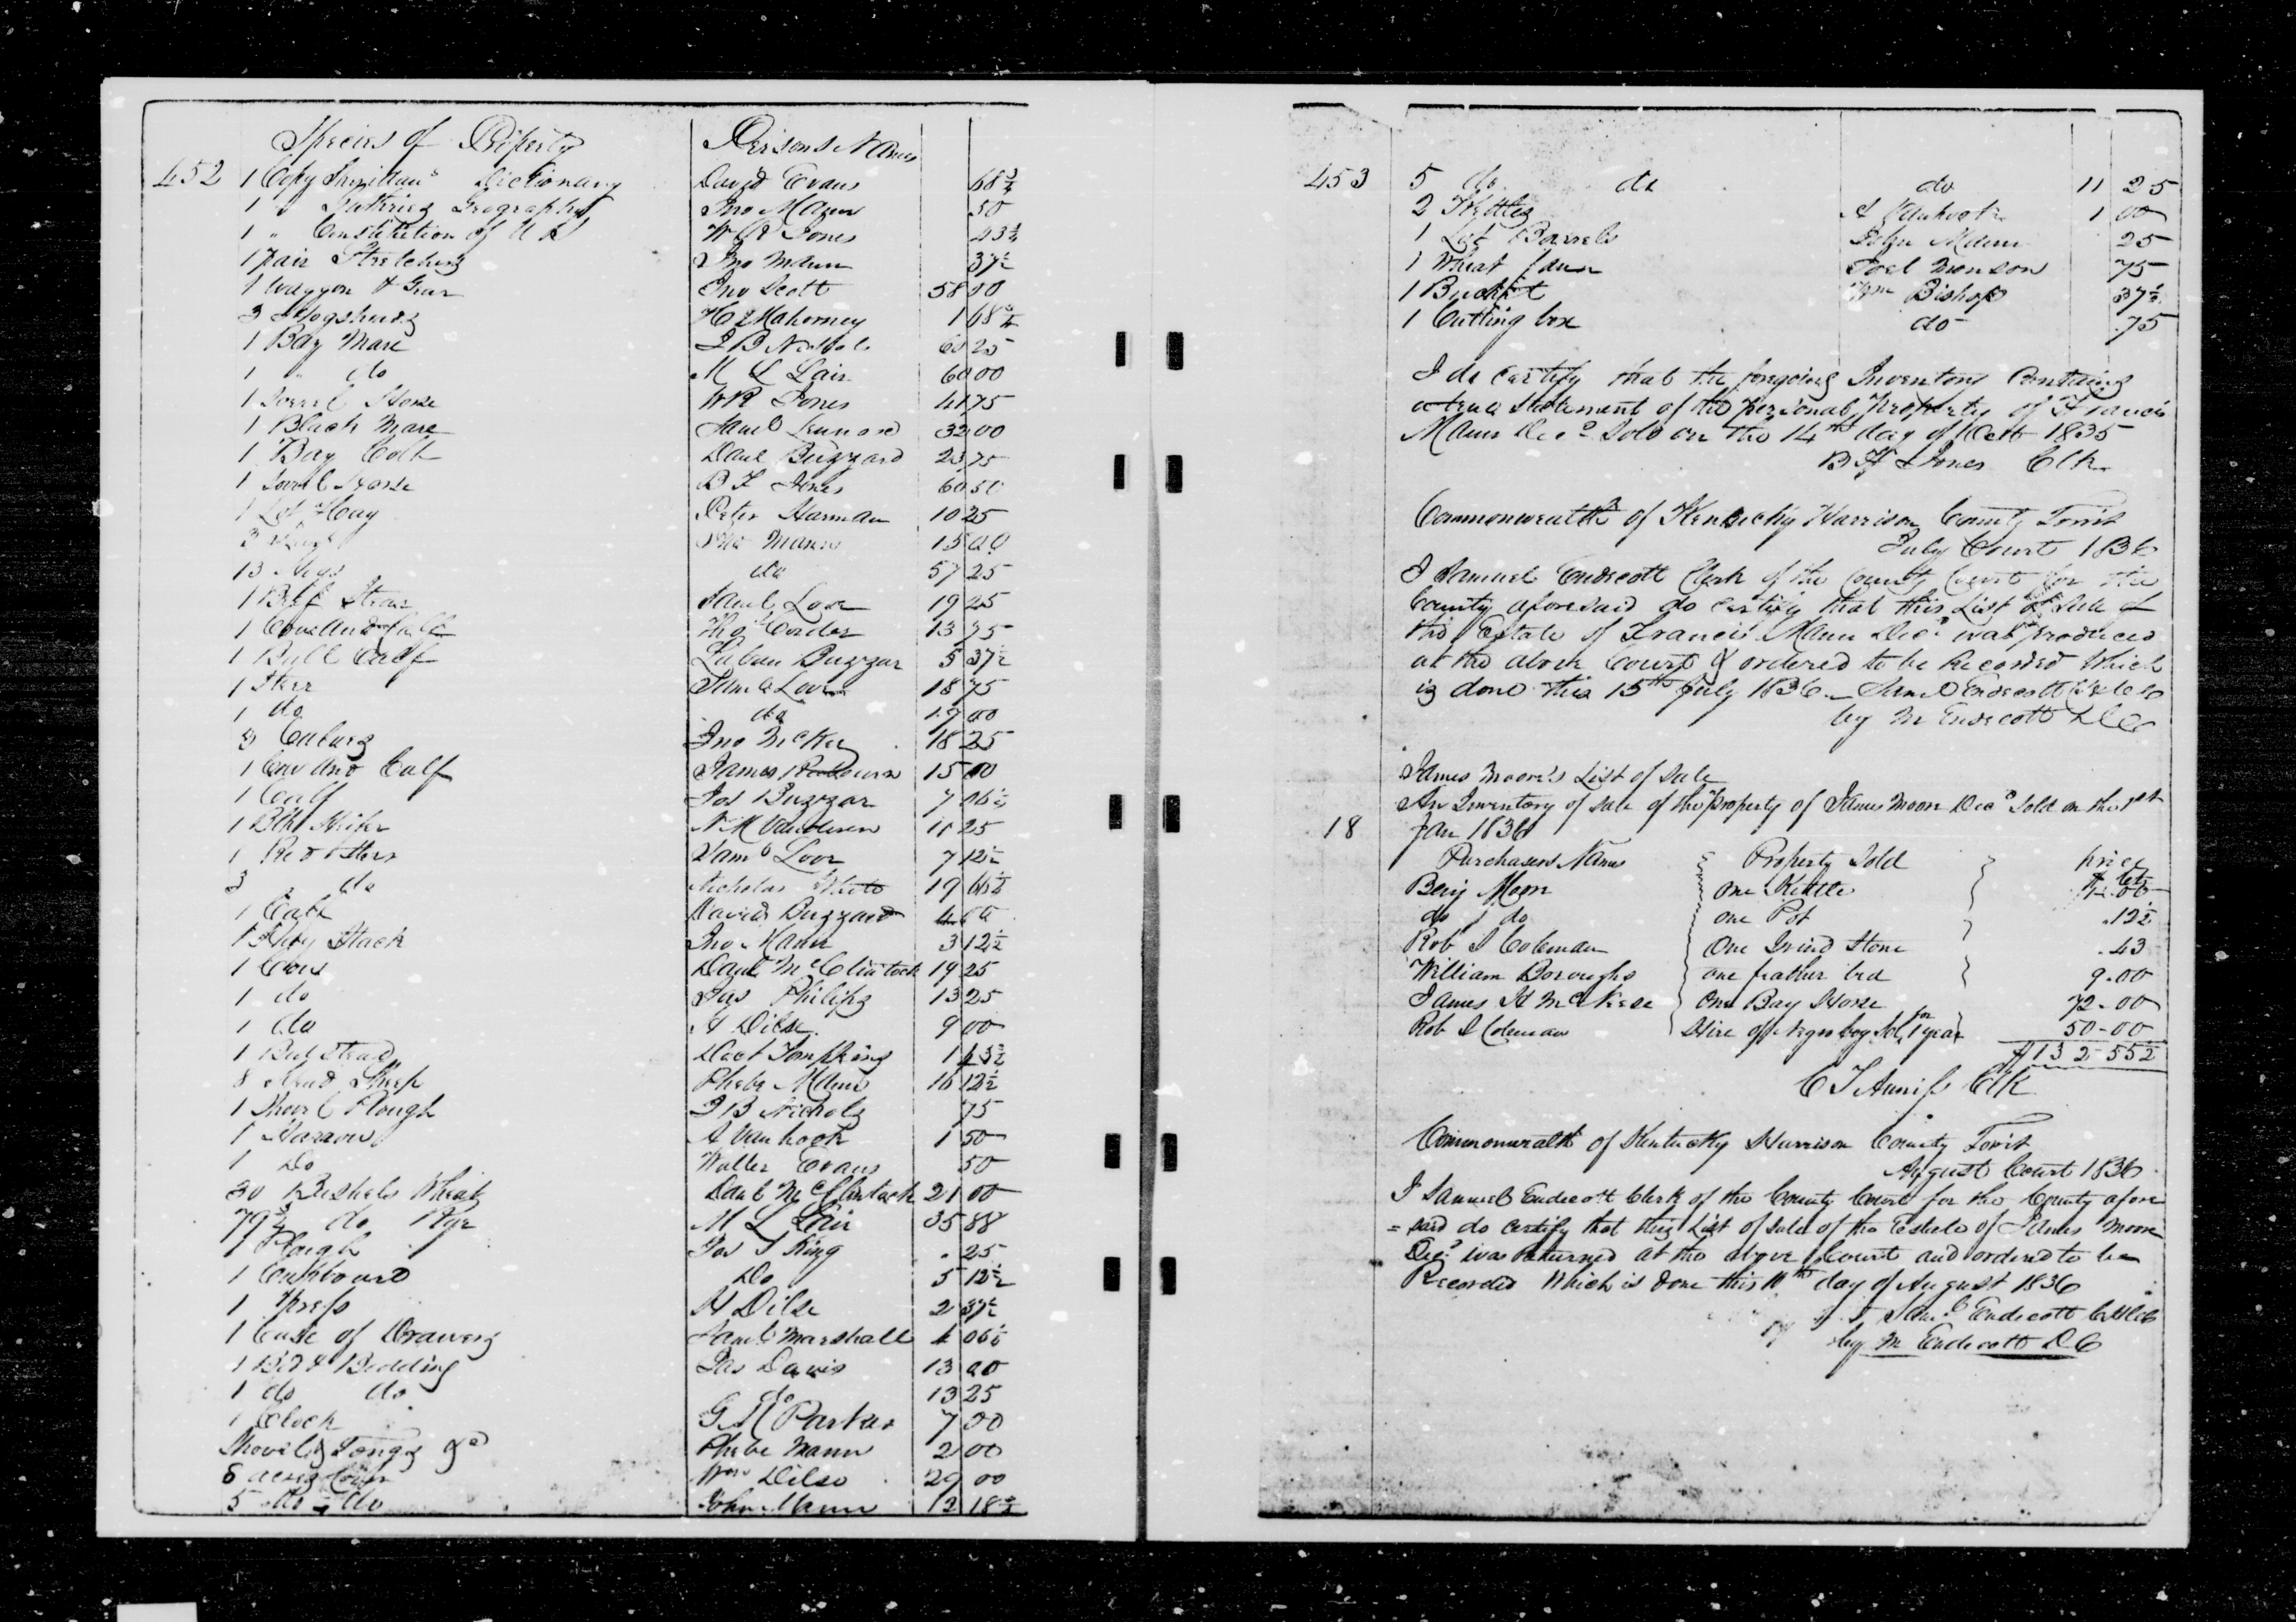 Species of Property Persons Names
452 1 Copy Dictionary David Evans 68 3/4
1 " Guthries Geography Jno Mann 50
1 " Constitution of U S W R Jones 43 3/4
1 pair Stretchers Jno Mann 37 1/2
1 Waggon & Gear Jno Scott 58 00
3 Hogsheads H Mahorney 1 68 3/4
1 Bay Mare J B 60 25
1 " do M L Lair 60 00
1 Sorrel Horse W R Jones 41 75
1 Black Mare Saml 32 00
1 Bay Colt Danl Buzzard 23 75
1 Sorrel Horse B F Jones 60 50
1 Lot Hay Peter Harman 10 25
3 Jno Mann 15 00
13 Hogs do 57 25
1 Beef Steer Saml Love 19 25
1 Cow and Calf Tho Corder 13 75
1 Bull Calf Laban Buzzar 5 37 1/2
1 Steer Saml Love 18 75
1 do do 00
Jno McKee 18 25
1 Cow and Calf James 15 00
1 Calf Jos Buzzar 7 06 1/4
1 Blk Heifer N M 25
1 Red Steer Saml Love 7 12 1/2
3 do Nicholas 19
1 Calf David Buzzard
1 Hay Stack Jno Mann 3 12 1/2
1 Cow Danl McClintock 19 25
1 do Jas Philips 13 25
1 do H Dilse 9 00
1 Bedstead Doct Tompkins 1
8 Head Sheep Phebe Mann 16 12 1/2
1 Shovel Plough J B Nichols 75
1 Harrow A Vanhook 1 50
1 Do Walter Evans 50
30 Bushels Wheat Danl McClintock 21 00
79 3/4 do Rye M L Lair 35 88
1 Plough Jos S King 25
1 Cupboard Do 5 12 1/2
1 press H Dilse 2 37 1/2
1 Case of Drawers Saml Marshall 4 06 1/4
1 Bed & Bedding Jas Davis 13 00
1 do do do 13 25
1 Clock G H Parker 7 00
Shovel & Tongs &c Phebe Mann 2 00
8 acres Corn Wm Dilse 29 00
5 do do John Mann 12 18 3/4
453 5 do do do 11 25
2 Kettles A Vanhook 1 00
1 Lot Barrels John Mann 25
1 Wheat fann Joel Monson 75
1 Bucket Wm Bishop 37 1/2
1 Cutting box do 75
I do certify that the foregoing Inventory Containing
a true statement of the personal Property of Francis
Mann Decd Sold on the 14th day of Octr 1835
B F Jones Clk
Commonwealth of Kentucky Harrison County Towit
July Court 1836
I Samuel Endecott Clerk of the County Court for the
County aforesaid do certify that this List of Sale of
the Estate of Francis Mann Decd was produced
at the above Court & ordered to be Recorded Which
is done this 15th July 1836 Saml Endecott
by M Endecott D C
James Moore's List of Sale
An Inventory of sale of the property of James Moore Decd Sold on the 1st
18 Jan 1836
Purchasers Names Property Sold price
Benj Moore One Kettle
do do one Pot .12 1/2
Rob J Coleman One Grind Stone .43
William Boroughs one feather bed 9.00
James H McKee One Bay Horse 72-00
Rob J Coleman Hire of Negro boy Sol for 1 year 50-00
$132-55 1/2
C T Clk
Commonwealth of Kentucky Harrison County Towit
August Court 1836
I Samuel Endecott Clerk of the County Court for the County afore
=said do certify that this List of Sale of the Estate of James Moore
Decd was Returned at the above Court and ordered to be
Recorded Which is done this 10th day of August 1836
Saml Endecott
by M Endecott D C